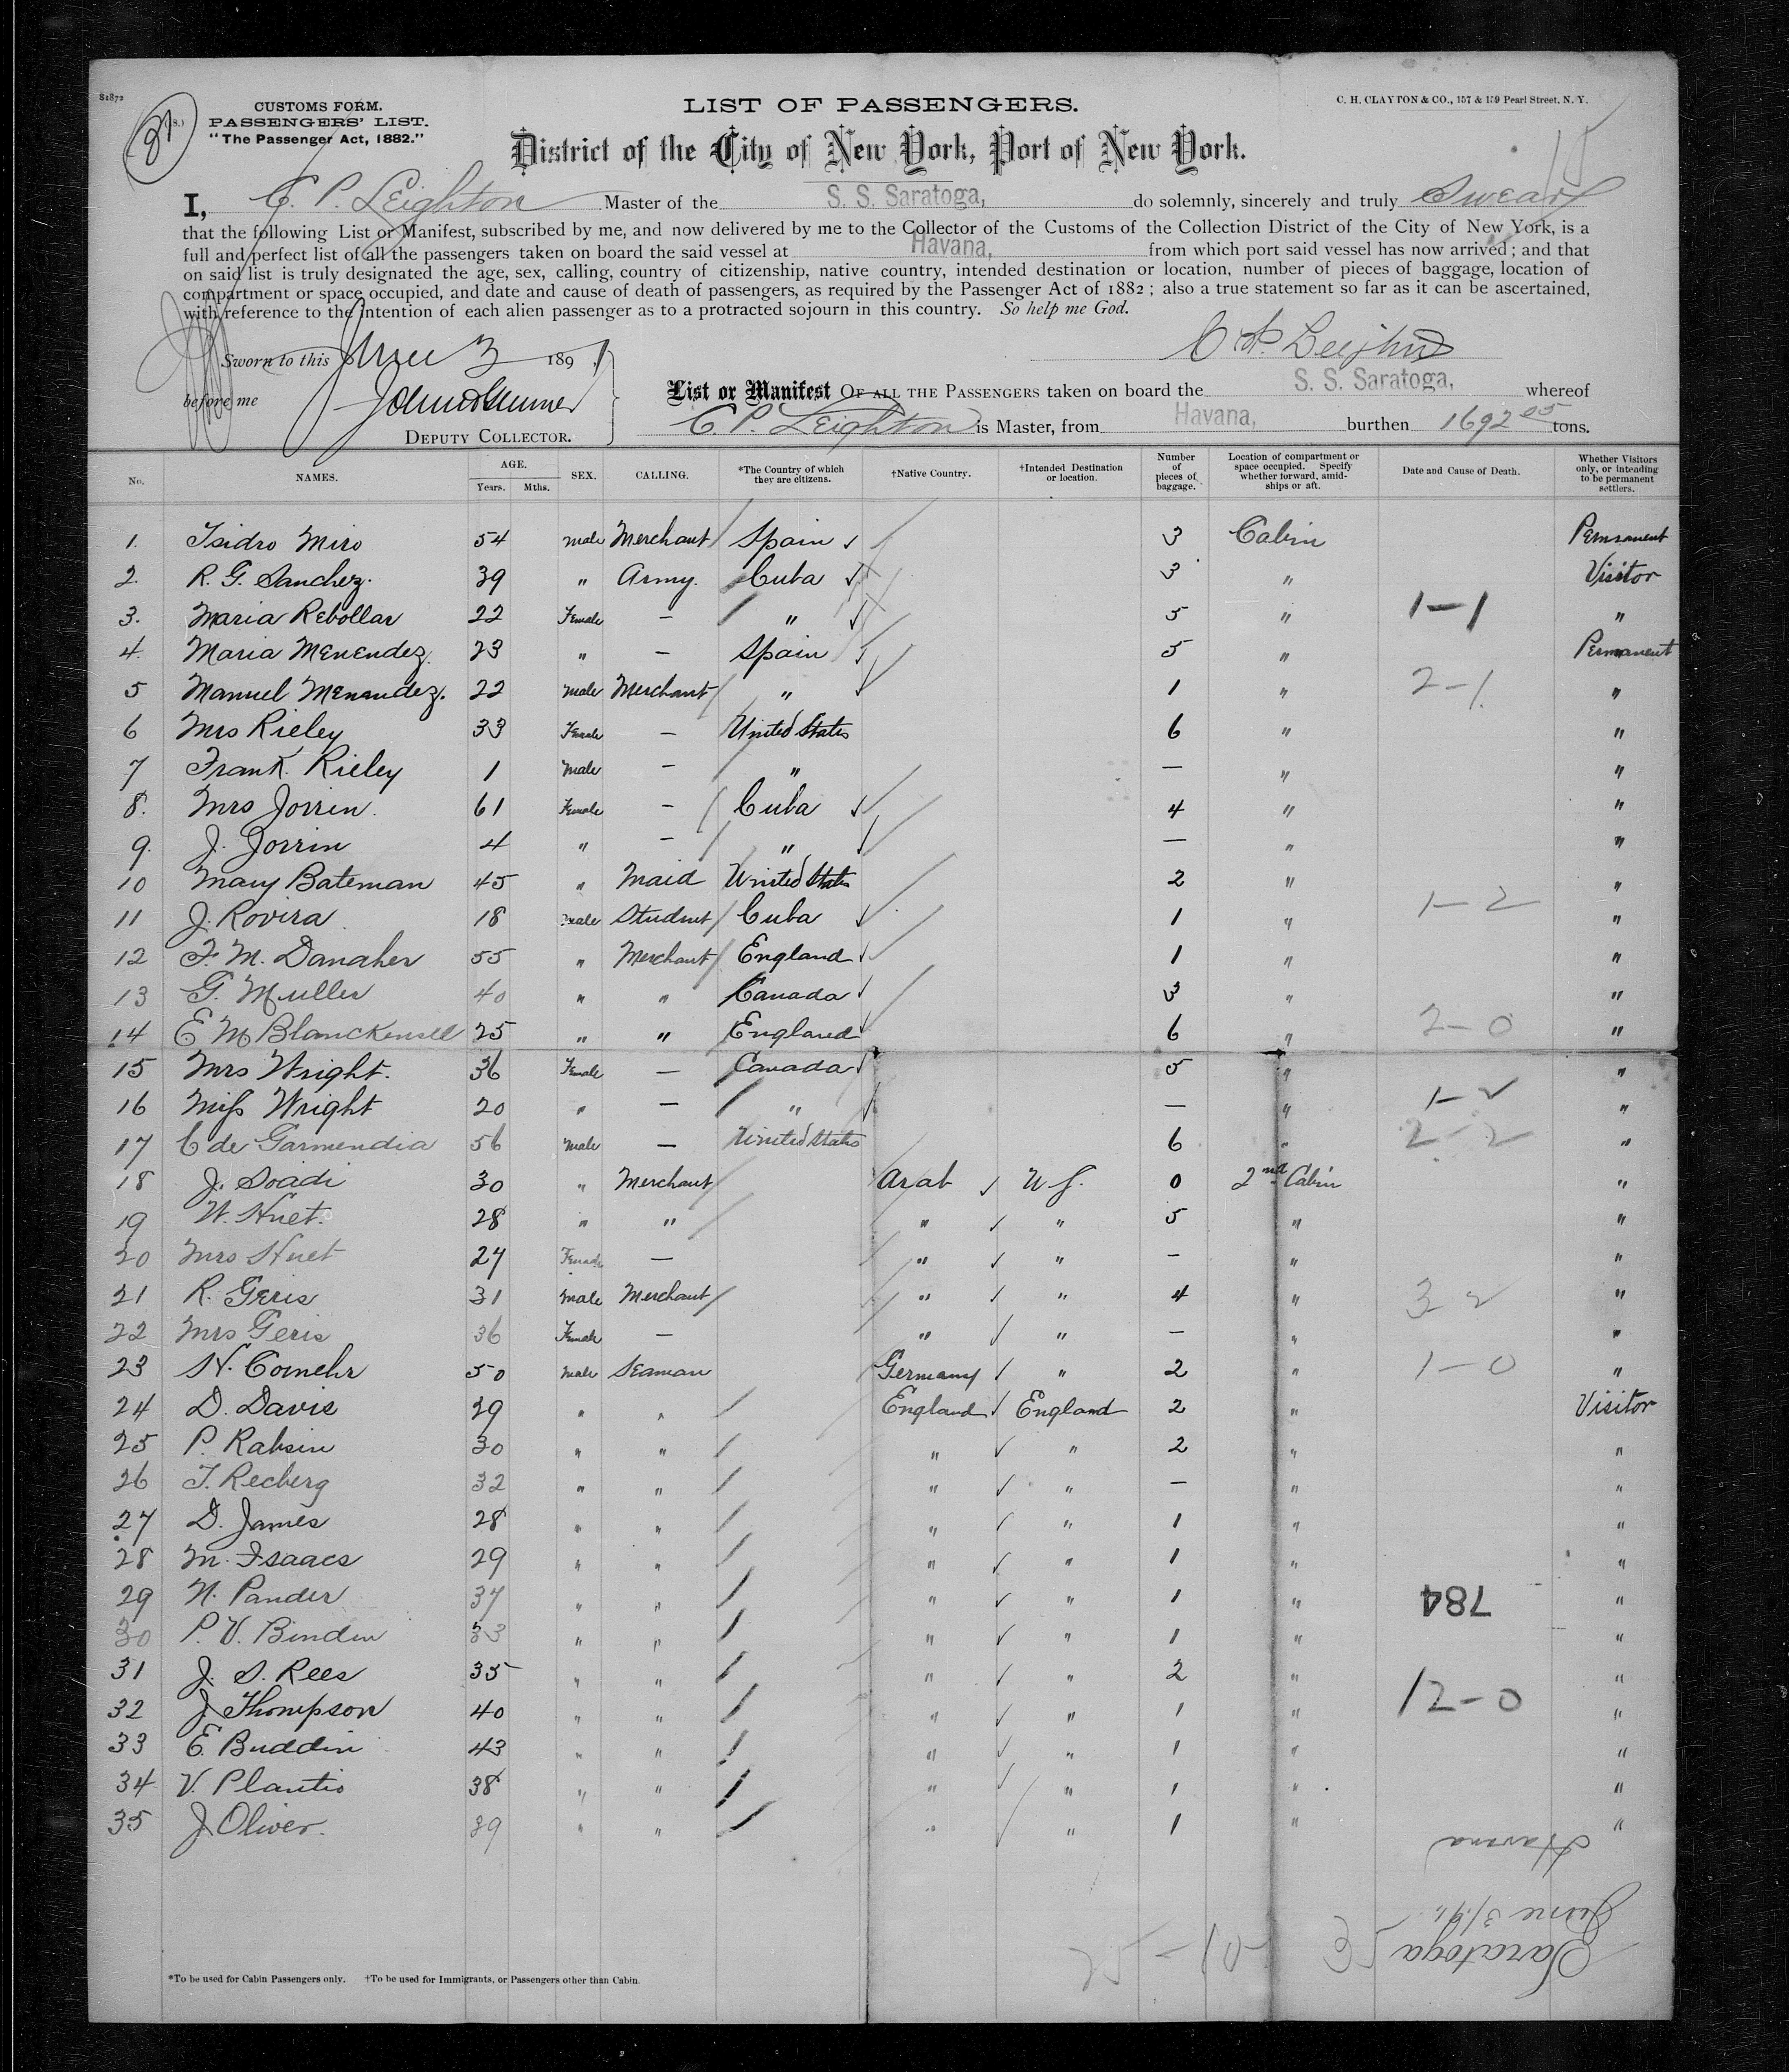 81872
31
CUSTOMS FORM.
PASSENGERS' LIST.
"The Passenger Act, 1882."
LIST OF PASSENGERS.
C. H. CLAYTON & CO., 157 & 159 Pearl Street, N. Y.
District of the City of New York, Port of New York.
I, C. P. Leighton Master of the S. S. Saratoga, do solemnly, sincerely and truly Swear
that the following List or Manifest, subscribed by me, and now delivered by me to the Collector of the Customs of the Collection District of the City of New York, is a
full and perfect list of all the passengers taken on board the said vessel at Havana, from which port said vessel has now arrived; and that
on said list is truly designated the age, sex, calling, country of citizenship, native country, intended destination or location, number of pieces of baggage, location of
compartment or space occupied, and date and cause of death of passengers, as required by the Passenger Act of 1882; also a true statement so far as it can be ascertained,
with reference to the intention of each alien passenger as to a protracted sojourn in this country. So help me God.
Sworn to this June 3 1891
before me
DEPUTY COLLECTOR.
C. P. Leighton
List or Manifest OF ALL THE PASSENGERS taken on board the S. S. Saratoga, whereof
C. P. Leighton is Master, from Havana, burthen 1692 05 tons.
No. NAMES. AGE. Years. Mths. SEX. CALLING. *The Country of which they are citizens. †Native Country. †Intended Destination or location. Number of pieces of baggage. Location of compartment or space occupied. Specify whether forward, amidships or aft. Date and Cause of Death. Whether Visitors only, or intending to be permanent settlers.
1. Isidro Miro 54 male Merchant Spain 3 Cabin Permanent
2. R. G. Sanchez. 39 " Army. Cuba 3 " Visitor
3. Maria Rebollar 22 Female — " 5 " 1-1 "
4. Maria Menendez. 23 " — Spain 5 " Permanent
5 Manuel Menandez. 22 male Merchant " 1 " 2-1. "
6 Mrs Rieley 33 Female — United States 6 " "
7 Frank. Rieley 1 male — " — " "
8. Mrs Jorrin. 61 Female — Cuba 4 " "
9. J. Jorrin 4 " — " — " "
10 Mary Bateman 45 " Maid United States 2 " "
11 J. Rovira 18 male Student Cuba 1 " 1-2 "
12 F. M. Danaher 55 " Merchant England 1 " "
13 G. Muller 40 " " Canada 3 " "
14 E M Blanckensell 25 " " England 6 " 2-0 "
15 Mrs Wright. 36 Female — Canada 5 " "
16 Miss Wright 20 " — " — " 1-2 "
17 C de Garmendia 56 male — United States 6 " 2-2 "
18 J. Soadi 30 " Merchant Arab U S. 0 2nd Cabin "
19 W. Huet. 28 " " " " 5 " "
20 Mrs Huet 27 Female — " " — " "
21 R. Geris 31 male Merchant " " 4 " 3 2 "
22 Mrs Geris 36 Female — " " — " "
23 H. Comehr 50 male Seaman Germany " 2 " 1-0 "
24 D. Davis 29 " " England England 2 " Visitor
25 P. Rabsin 30 " " " " 2 " "
26 T. Recberg 32 " " " " — " "
27 D. James 28 " " " " 1 " "
28 M. Isaacs 29 " " " " 1 " "
29 N. Pander 37 " " " " 1 " 784 "
30 P. V. Binden 33 " " " " 1 " "
31 J. S. Rees 35 " " " " 2 " "
32 J Thompson 40 " " " " 1 " 12-0 "
33 E. Buddin 43 " " " " 1 " "
34 V. Plantis 38 " " " " 1 " "
35 J Oliver. 39 " " " " 1 " "
Havana
June 3/91.
Saratoga
35
25-10
*To be used for Cabin Passengers only. †To be used for Immigrants, or Passengers other than Cabin.